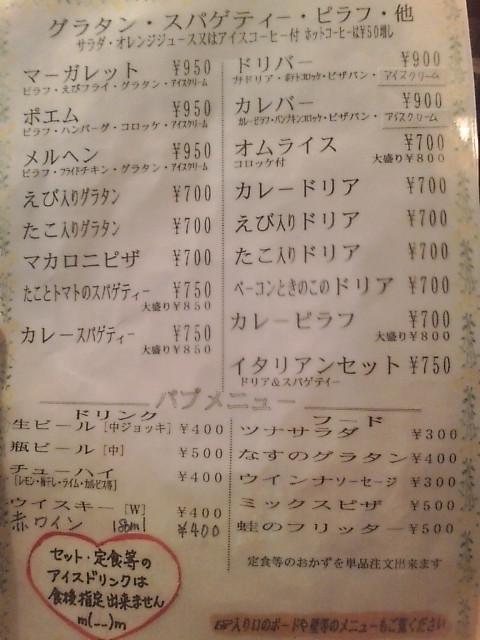 グラタン・スパゲティー・ピラフ・他
サラダ・オレンジジュース又はアイスコーヒー付 ホットコーヒーは¥50増し
マーガレット ¥950
ピラフ・えびフライ・グラタン・アイスクリーム
ポエム ¥950
ピラフ・ハンバーグ・コロッケ・アイスクリーム
メルヘン ¥950
ピラフ・フライドチキン・グラタン・アイスクリーム
えび入りグラタン ¥700
たこ入りグラタン ¥700
マカロニピザ ¥700
たことトマトのスパゲティー ¥750
大盛り¥850
カレースパゲティー ¥750
大盛り¥850
ドリバー ¥900
ドリア・ポテトコロッケ・ピザパン・アイスクリーム
カレバー ¥900
カレーピラフ・パンプキンコロッケ・ピザパン・アイスクリーム
オムライス ¥700
コロッケ付 大盛り¥800
カレードリア ¥700
えび入りドリア ¥700
たこ入りドリア ¥700
ベーコンときのこのドリア ¥700
カレーピラフ ¥700
大盛り¥800
イタリアンセット ¥750
ドリア&スパゲティー
パブメニュー
ドリンク
生ビール[中ジョッキ] ¥400
瓶ビール[中] ¥500
チューハイ ¥400
[レモン・梅干し・ライム・カルピス等]
ウイスキー[W] ¥400
赤ワイン 180ml ¥400
フード
ツナサラダ ¥300
なすのグラタン ¥400
ウインナソーセージ ¥300
ミックスピザ ¥500
蛙のフリッター ¥500
定食等のおかずを単品注文出来ます
セット・定食等の
アイスドリンクは
食後指定出来ません
m(__)m
☞入り口のボードや壁等のメニューもご覧ください